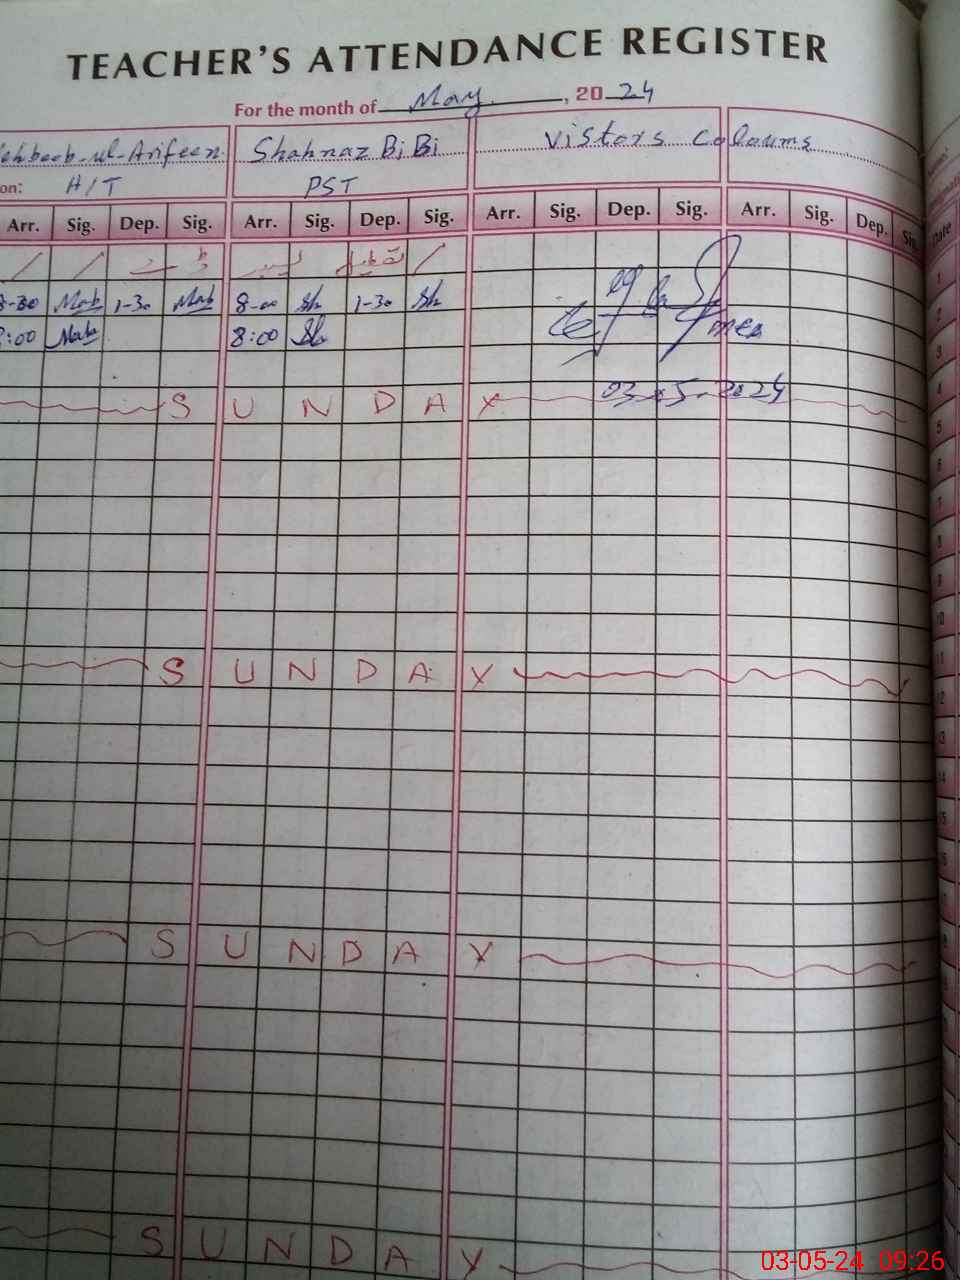 TEACHER'S ATTENDANCE REGISTER
For the month of May, 2024
ehboob-ul-Arifeen Shahnaz BiBi Vistors Coloums
on: H/T PST
Arr. Sig. Dep. Sig. Arr. Sig. Dep. Sig. Arr. Sig. Dep. Sig. Arr. Sig. Dep. Sig. Date
تعطیل
1
8-30 Mab 1-30 Mab 8-00 Sh 1-30 Sh 2
8:00 Mab 8:00 Sh 3
4
03-05-2024
SUNDAY 5
6
7
8
9
10
11
SUNDAY 12
13
14
15
16
SUNDAY
SUNDAY
03-05-24 09:26